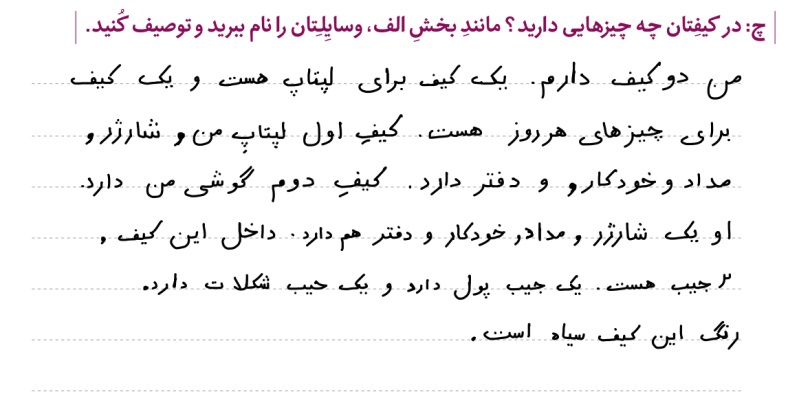 چ: در کیفِتان چه چیزهایی دارید؟ مانندِ بخشِ الف، وسایِلِتان را نام ببرید و توصیف کُنید.
من دو کیف دارم. یک کیف برای لپتاپ هست و یک کیف
برای چیزهای هر روز هست. کیفِ اول لپتاپِ من و شارژر و
مداد و خودکار و و دفتر دارد. کیفِ دوم گوشی من دارد.
او یک شارژر و مداد و خودکار و دفتر هم دارد. داخل این کیف و
۲ جیب هست. یک جیب پول دارد و یک جیب شکلات دارد.
رنگ این کیف سیاه است.